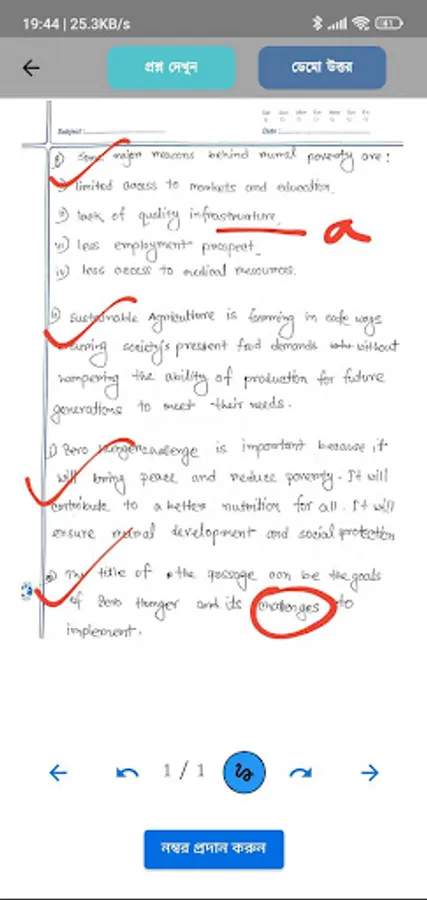 19:44 | 25.3KB/s
41
প্রশ্ন দেখুন
ডেমো উত্তর
Sat Sun Mon Tue Wed Thu Fri
Subject :
Date :
Some major reasons behind rural poverty are :
i) limited access to markets and education.
ii) lack of quality infrastructure.
a
iii) less employment prospect.
iv) less access to medical resources.
Sustainable Agriculture is farming in safe ways
ensuring society's pressent food demands without
hampering the ability of production for future
generations to meet their needs.
Zero Hunger challenge is important because it
will bring peace and reduce poverty. It will
contribute to a better nutrition for all. It will
ensure rural development and social protection
The title of the passage can be the goals
of Zero Hunger and its challenges to
implement.
1 / 1
নম্বর প্রদান করুন